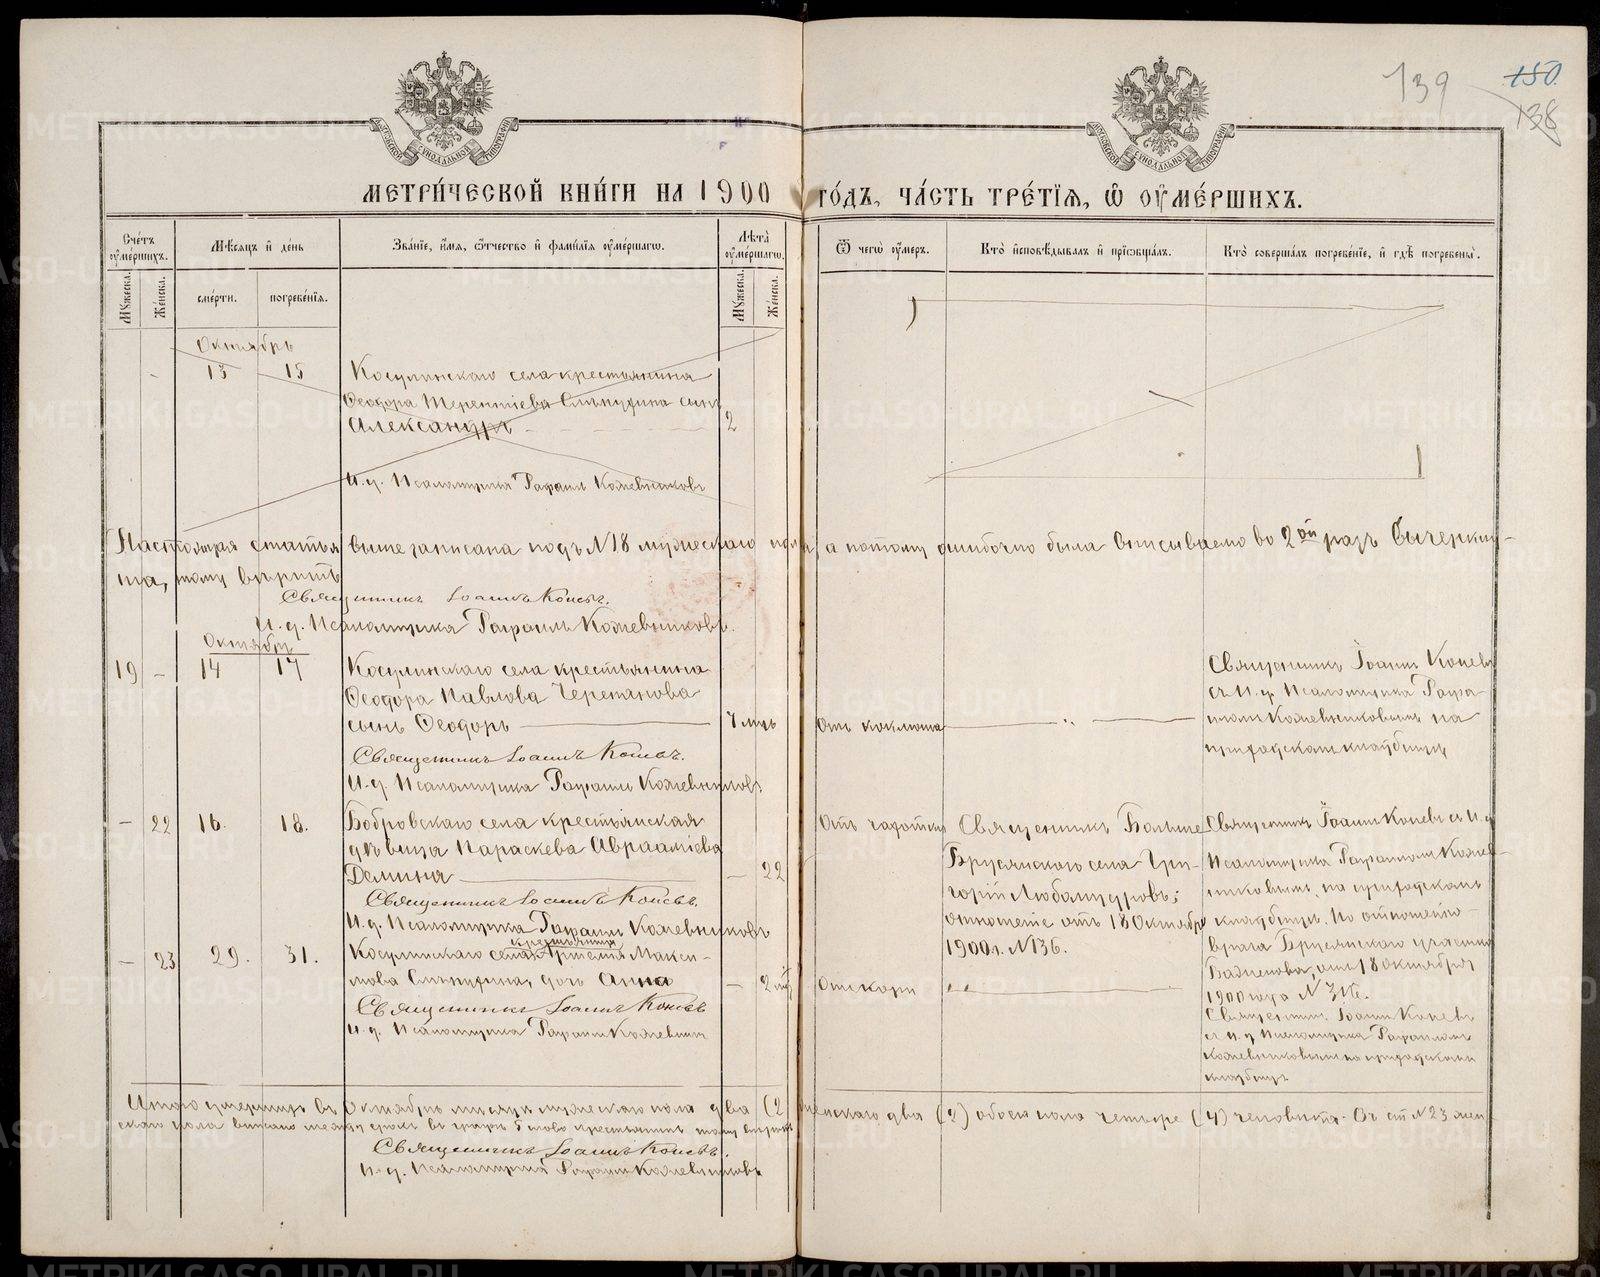 139
150
138
МОСКОВСКОЙ СѴНОДАЛЬНОЙ ТИПОГРАФІИ
МОСКОВСКОЙ СѴНОДАЛЬНОЙ ТИПОГРАФІИ
МЕТРИ́ЧЕСКОЙ КНИ́ГИ НА 1900 ГО́ДЪ, ЧА́СТЬ ТРЕ́ТІѦ, Ѡ҆ ОУ҆МЕ́РШИХЪ.
Сче́тъ оу҆ме́ршихъ.
Мѣ́сяцъ и҆ де́нь
Зва́нїе, и҆́мя, ѻ҆́тчество и҆ фами́лїя оу҆ме́ршагѡ.
Лѣ́та оу҆ме́ршагѡ.
Ѿ чегѡ̀ оу҆́меръ.
Кто̀ и҆сповѣ́дывалъ и҆ прїѡбща́лъ.
Кто̀ соверша́лъ погребе́нїе, и҆ гдѣ̀ погребены̀.
Мꙋ́жеска.
Же́нска.
сме́рти.
погребе́нїя.
Мꙋ́жеска.
Же́нска.
Октябрь
- 13 15 Косулинскаго села крестьянина
Ѳеодора Терентіева Слѣпухина сынъ
Александръ - - - - 2
И. д. Псаломщика Рафаилъ Кожевниковъ
Настоящая статья выше записана подъ N18 мужескаго пола, а потому ошибочно была вписываемо во 2ой разъ вычеркну-
та, тому вѣрить
Священникъ Іоаннъ Коневъ.
И. д. Псаломщика Рафаилъ Кожевниковъ.
Октябрь
19 - 14 17 Косулинскаго села крестьянина
Ѳеодора Павлова Черепанова
сынъ Ѳеодоръ 7 мцъ
Священникъ Іоаннъ Коневъ.
И. д. Псаломщика Рафаилъ Кожевниковъ
Отъ коклюша
Священникъ Іоаннъ Коневъ
съ И. д. Псаломщика Рафа-
иломъ Кожевниковымъ на
приходскомъ кладбищѣ
- 22 16. 18. Бобровскаго села крестьянская
дѣвица Параскева Авраамiева
Демина - 22
Священникъ Іоаннъ Коневъ.
И. д. Псаломщика Рафаилъ Кожевниковъ
Отъ чахотки
Священникъ Больше
Брусянскаго села Гри-
горій Любомудровъ;
отношеніе отъ 18 Октября
1900 г. N136.
Священникъ Іоаннъ Коневъ съ И. д
Псаломщика Рафаиломъ Кожев-
никовымъ на приходскомъ
кладбищѣ. По отношенію
врача Брусянского участка
Баженова, отъ 18 Октября
1900 года N 316.
крестьянина
- 23 29. 31. Косулинскаго села Артемія Макси-
мова Слѣпухина, дочь Анна - 2 мц
Священникъ Іоаннъ Коневъ
И. д. Псаломщика Рафаилъ Кожевник
Отъ кори
Священникъ Іоаннъ Коневъ
съ И. д Псаломщика Рафаиломъ
Кожевниковымъ на приходскомъ
кладбищѣ
Итого умершихъ въ Октябрѣ мѣсяцѣ мужескаго пола два (2) женскаго два (2) обоего пола четыре (4) человѣка. Въ ст N 23 жен
скаго пола вписано между строкъ слово крестьянинъ тому вѣрить
Священникъ Іоаннъ Коневъ.
И. д. Псаломщика Рафаилъ Кожевниковъ
METRIKI.GASO-URAL.RU